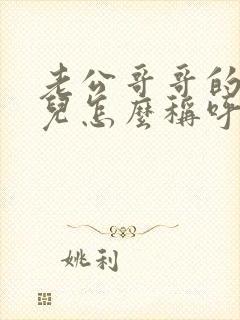 老公哥哥的
兒怎麼稱呼
姚利